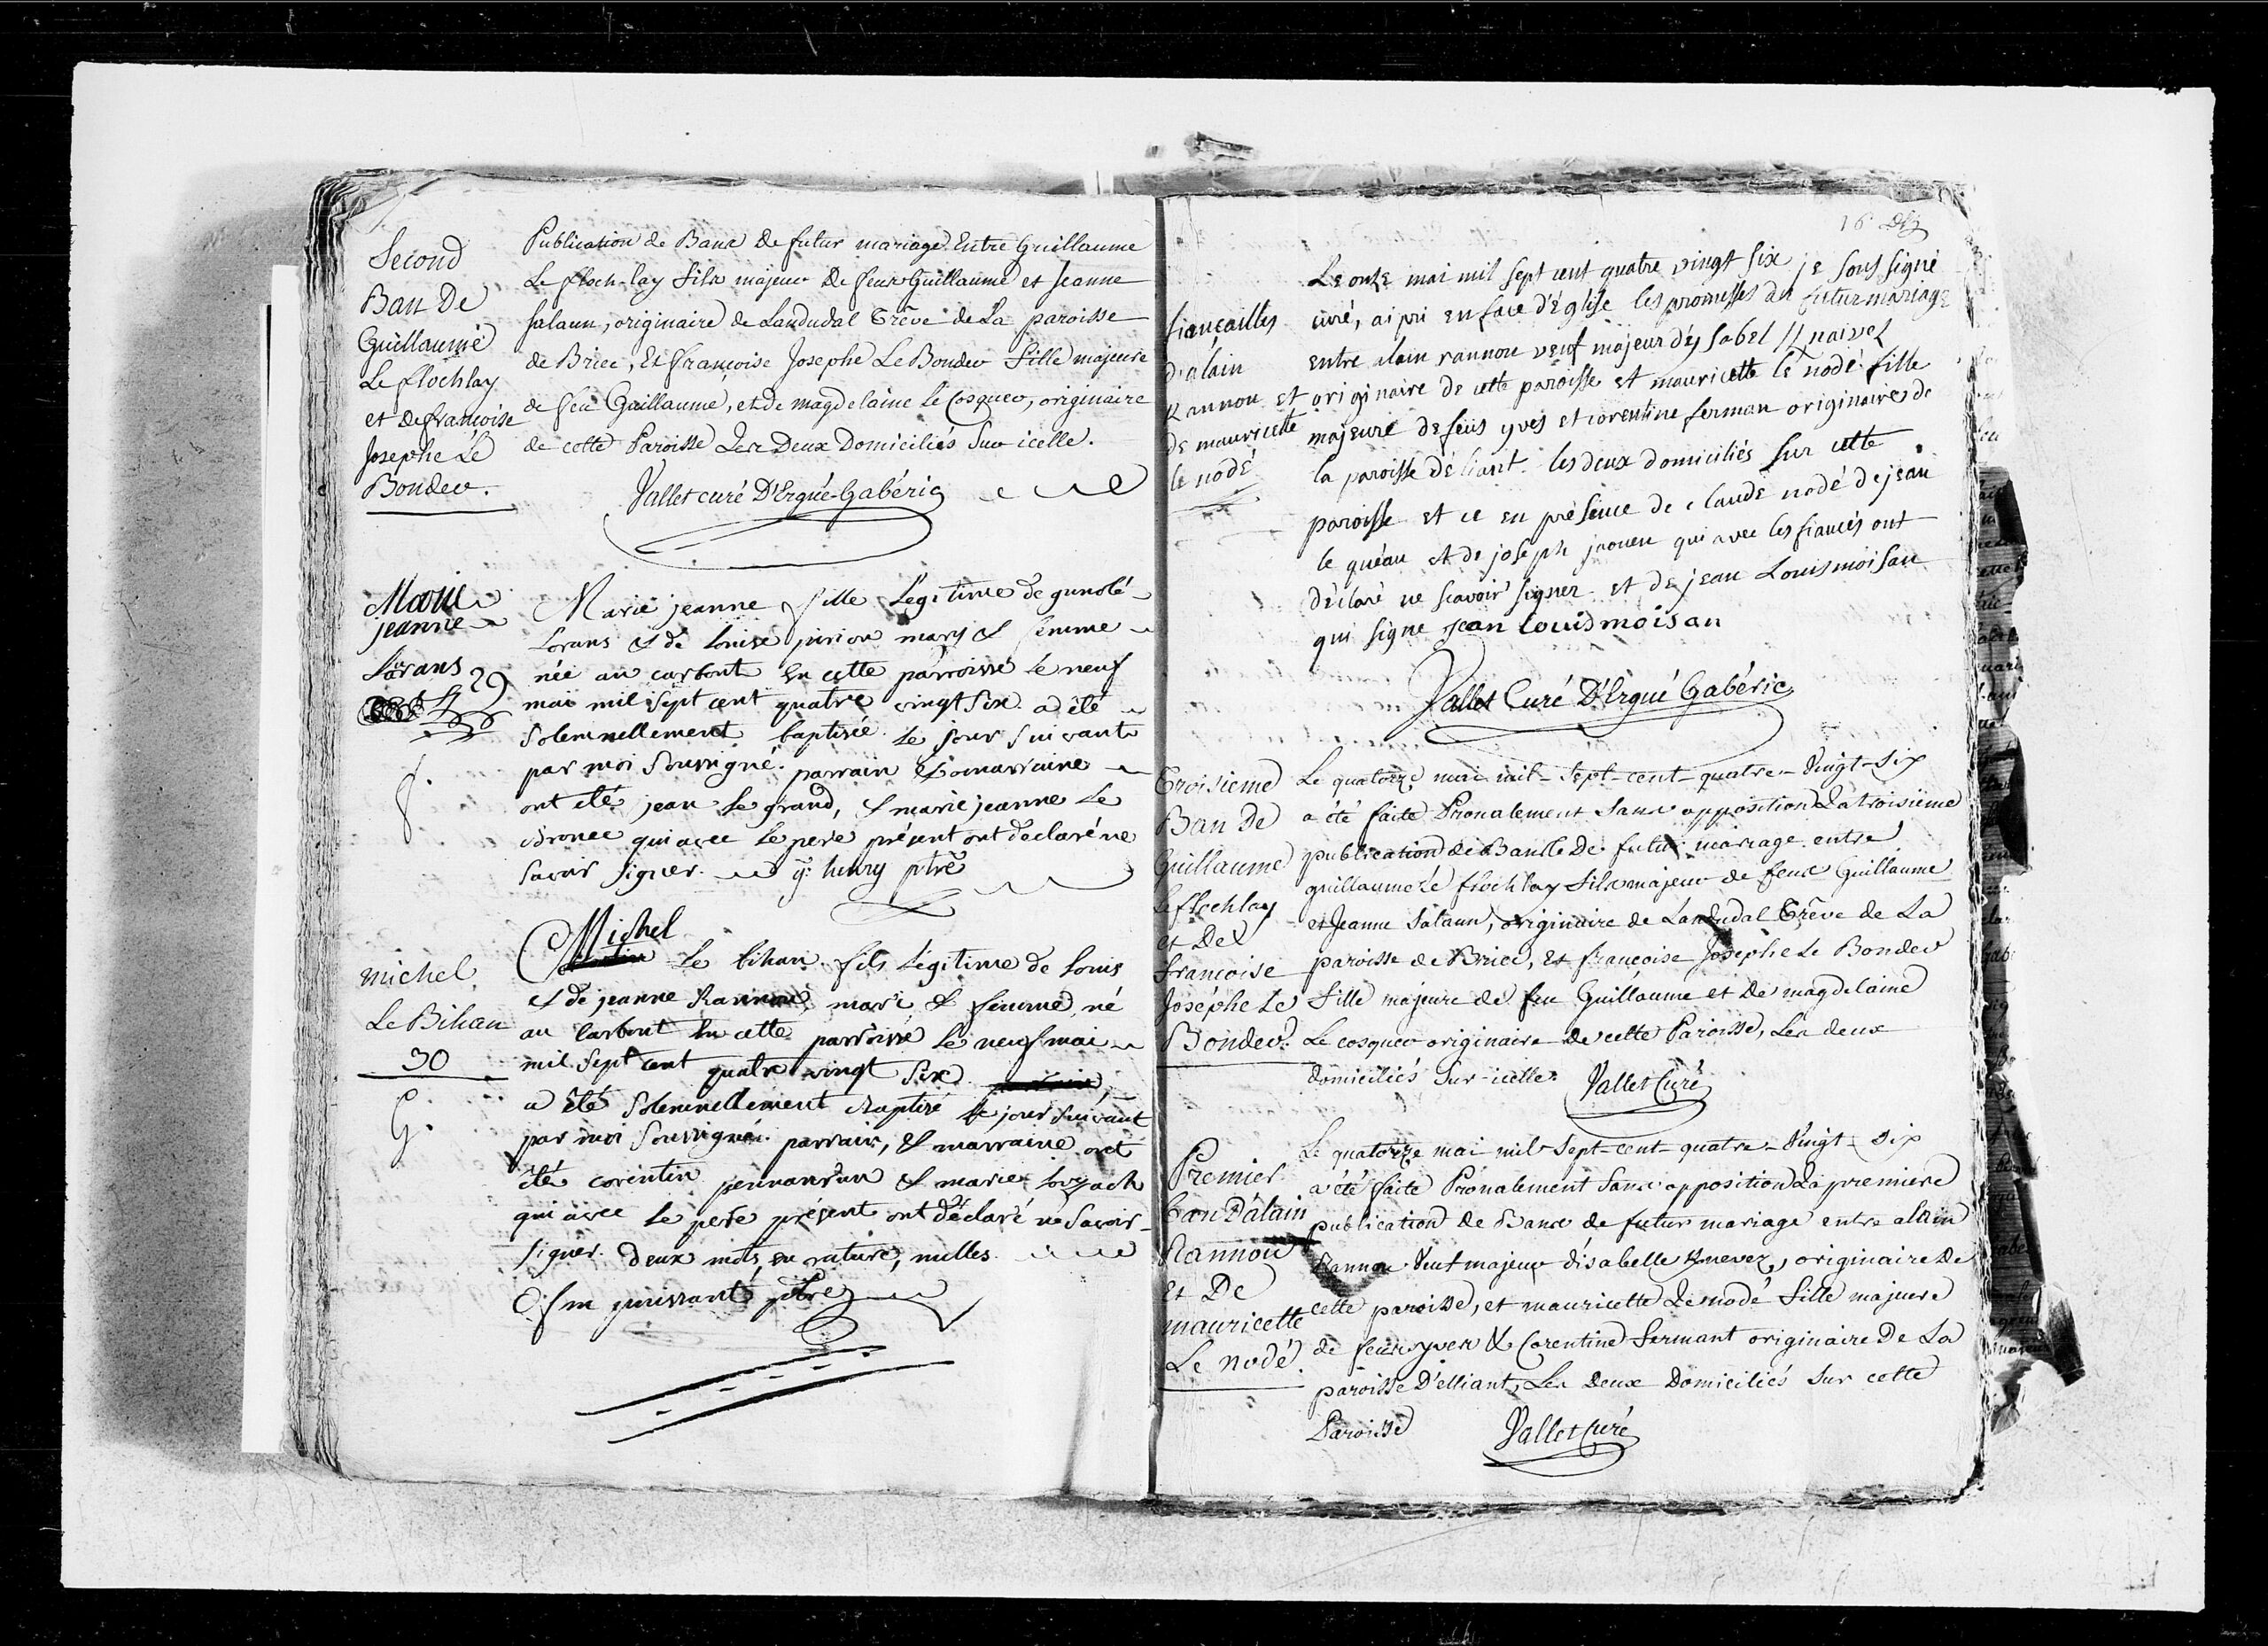 Second
Ban De
Guillaume
Le flochlay
et de francoise
Josephe Le
Bondev.
Publication de Bans De futur mariage Entre Guillaume
Le floch-lay fils majeur De feu Guillaume et Jeanne
salaun, originaire de Landudal Trêve de La paroisse
de Briec, Et françoise Josephe Le Bondev fille majeure
de feu Guillaume, et de magdelaine Le Cosquev, originaire
de cette Paroisse Les Deux Domiciliés Sur icelle.
Vallet curé D'Ergué-Gabéric
Marie
jeanne
Lorans
29
Marie jeanne fille Legitime de gunolé
Lorans & de Louise mary & femme
née au carbont En cette parroisse le neuf
mai mil sept cent quatre vingt Six a été
Solemnellement baptisée le jour suivant
par moi Soussigné. parrain & marraine
ont été jean Le grand, & marie jeanne Le
qui avec Le pere présent ont declaré ne
Savoir signer. g: henry ptrê
michel
Le Bihan
30
G.
Michel
Le bihan fils Légitime de Louis
& de jeanne Rannou mari & femme, né
au Carbont En cette parroisse le neuf mai
mil Sept Cent quatre vingt Six
a été Solemnellement Baptisé le jour suivant
par moi Soussigné. parrain, & marraine ont
été corentin pennanrun & marie
qui avec Le pere présent ont déclaré ne Savoir
signer. deux mots en rature, nulles
16
fiançailles
d'alain
Rannou et
de mauricette
le nodé
Le onze mai mil sept cent quatre vingt six je soussigné
curé, ai pri en face d'Eglise les promesses du futur mariage
entre alain rannou veuf majeur d'ysabel
originaire de cette paroisse et mauricette le nodé fille
majeure de feus yves et corentine ferman originaire de
la paroisse déliant. les deux domiciliés sur cette
paroisse et ce en présence de claude nodé de jean
le quéau et de joseph jaouen qui avec les fiancés ont
déclaré ne scavoir signer et de jean Louis moisan
qui signe jean louis moisan
Vallet Curé D'Ergué Gabéric
Troisieme
Ban De
Guillaume
Le flochlay
et De
françoise
Joséphe Le
Bondev.
Le quatorze mai mil-sept-cent-quatre-Vingt-six
a été faite Pronalement Sans opposition La troisiême
publication de Bans De futur mariage entre
guillaume Le flochlay fils majeur de feux Guillaume
et Jeanne Salaun, originaire de Landudal Trêve de La
paroisse de Briec, Et françoise Josephe Le Bondev
fille majeure de feu Guillaume et De magdelaine
Le cosquev originaire De cette Paroisse, Les deux
domiciliés Sur-icelle. Vallet Curé
Premier
Ban D'alain
Rannou
Et De
mauricette
Le nodé
Le quatorze mai-mil-Sept-cent-quatre-Vingt-six
a été faite Pronalement Sans opposition La premiere
publication de Bans de futur mariage entre alain
Rannou Veuf majeur d'isabelle , originaire De
cette paroisse, et mauricette Le nodé fille majeure
de feus yves & Corentine Fermant originaire De La
paroisse D'elliant, Les Deux Domiciliés Sur cette
Paroisse Vallet Curé